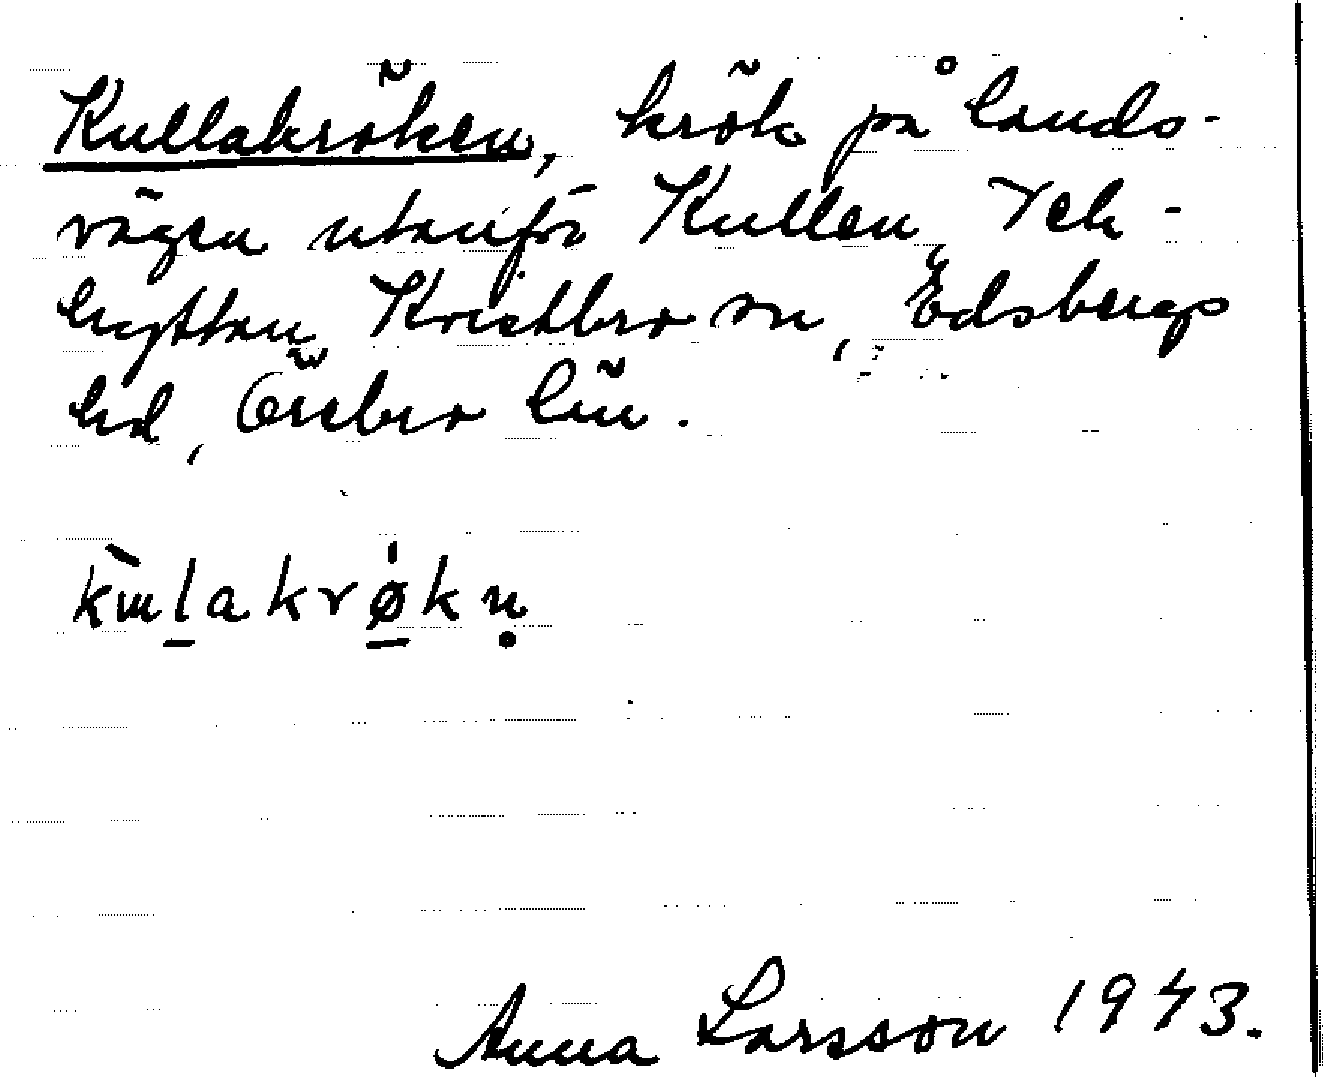 Kullakröken, krök på lands-
vägen utanför Kullen, Vek-
hyttan, Kvistbro sn, Edsbergs
hd, Örebro län.
kɯlakrøkn̥
Anna Larsson 1943.